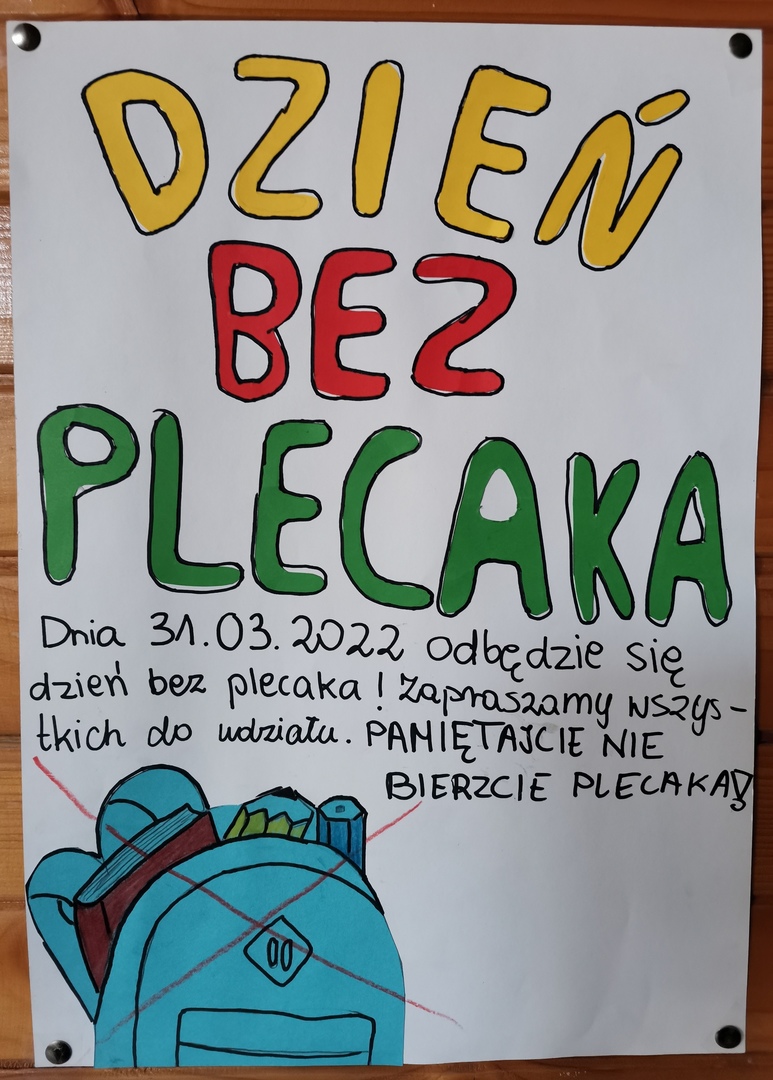 DZIEŃ
BEZ
PLECAKA
Dnia 31.03.2022 odbędzie się
dzień bez plecaka! Zapraszamy wszys-
tkich do udziału. PAMIĘTAJCIE NIE
BIERZCIE PLECAKA!